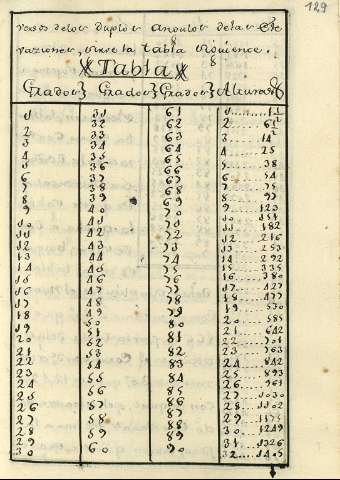 129
versos de los duplos angulos de las Ele
vaziones, sirve la tabla siguiente.
Tabla
Grados} Grados} Grados} Alturas
1 31 61 1......1 1/2
2 32 62 2......6 1/2
3 33 63 3......14
4 34 64 4......25
5 35 65 5......38
6 36 66 6......54
7 37 67 7......75
8 38 68 8......97
9 39 69 9......123
10 40 70 10......151
11 41 71 11......182
12 42 72 12......216
13 43 73 13......253
14 44 74 14......292
15 45 75 15......335
16 46 76 16......380
17 47 77 17......427
18 48 78 18......477
19 49 79 19......530
20 50 80 20......585
21 51 81 21......642
22 52 82 22......701
23 53 83 23......763
24 54 84 24......842
25 55 85 25......893
26 56 86 26......961
27 57 87 27......1030
28 58 88 28......1102
29 59 89 29......1175
30 60 90 30......1249
31......1326
32......1405